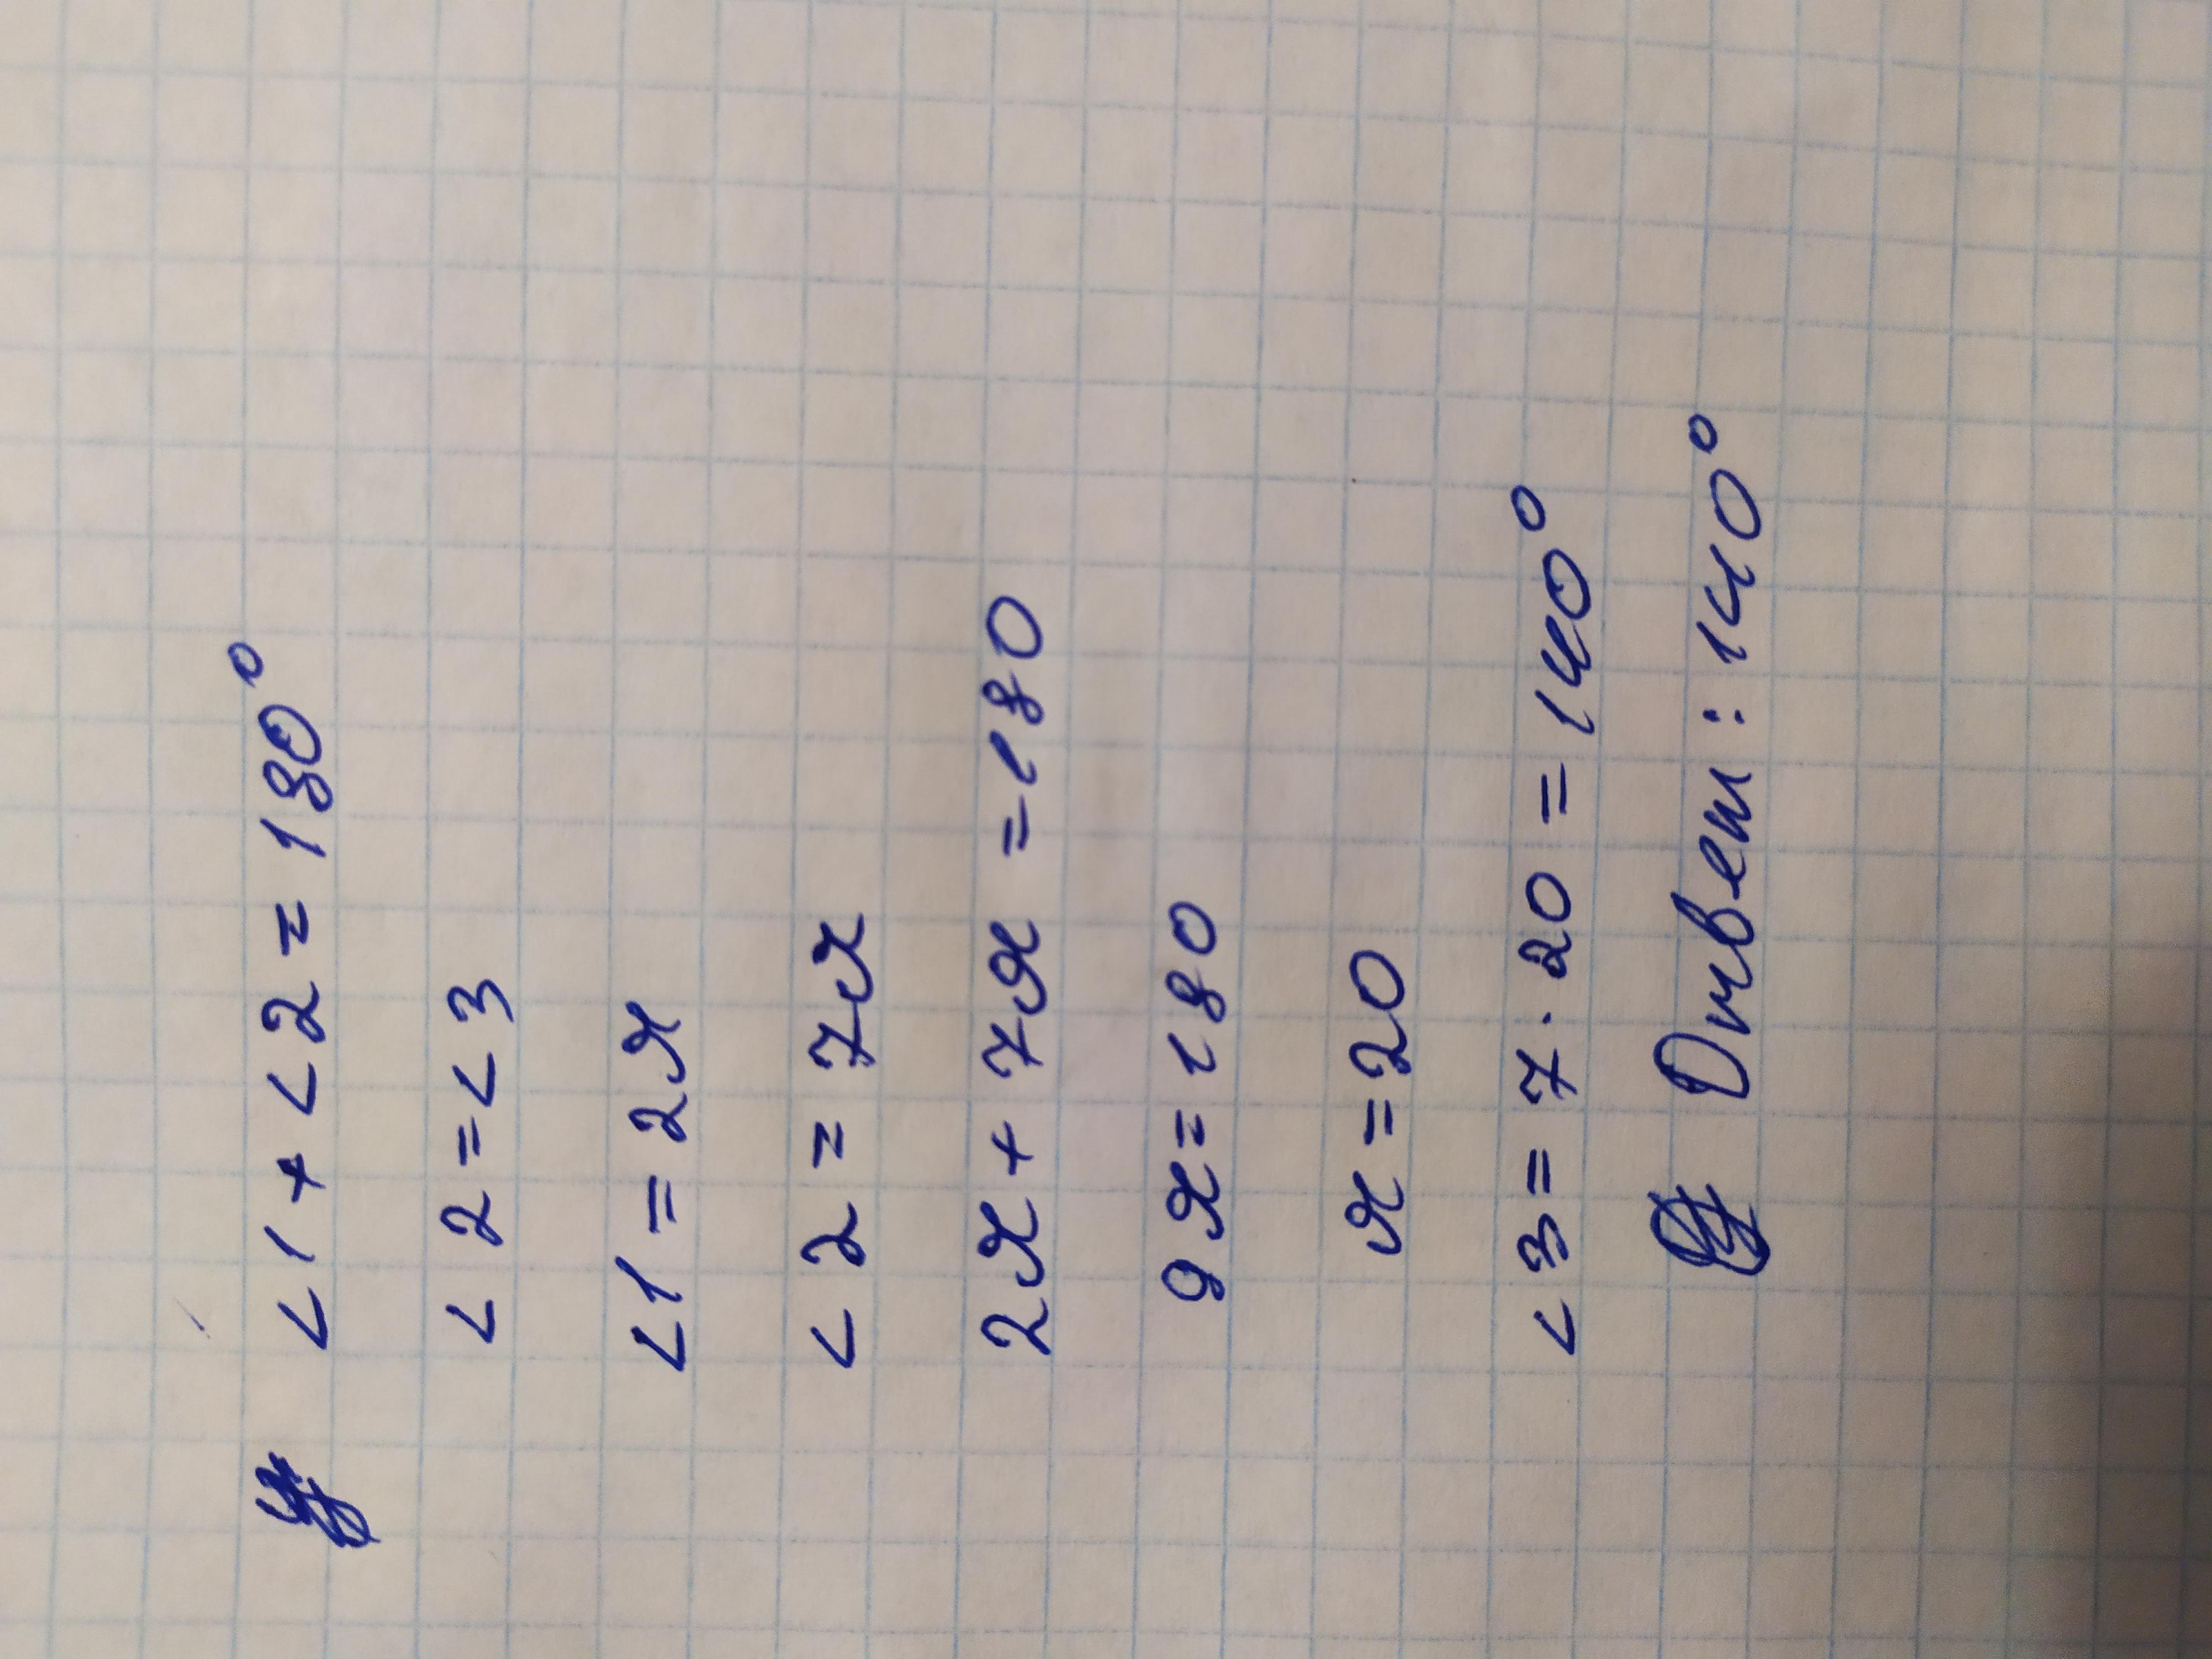 <1 + <2 = 180°
<2 = <3
<1 = 2x
<2 = 7x
2x + 7x = 180
9x = 180
x = 20
<3 = 7 · 20 = 140°
Ответ: 140°